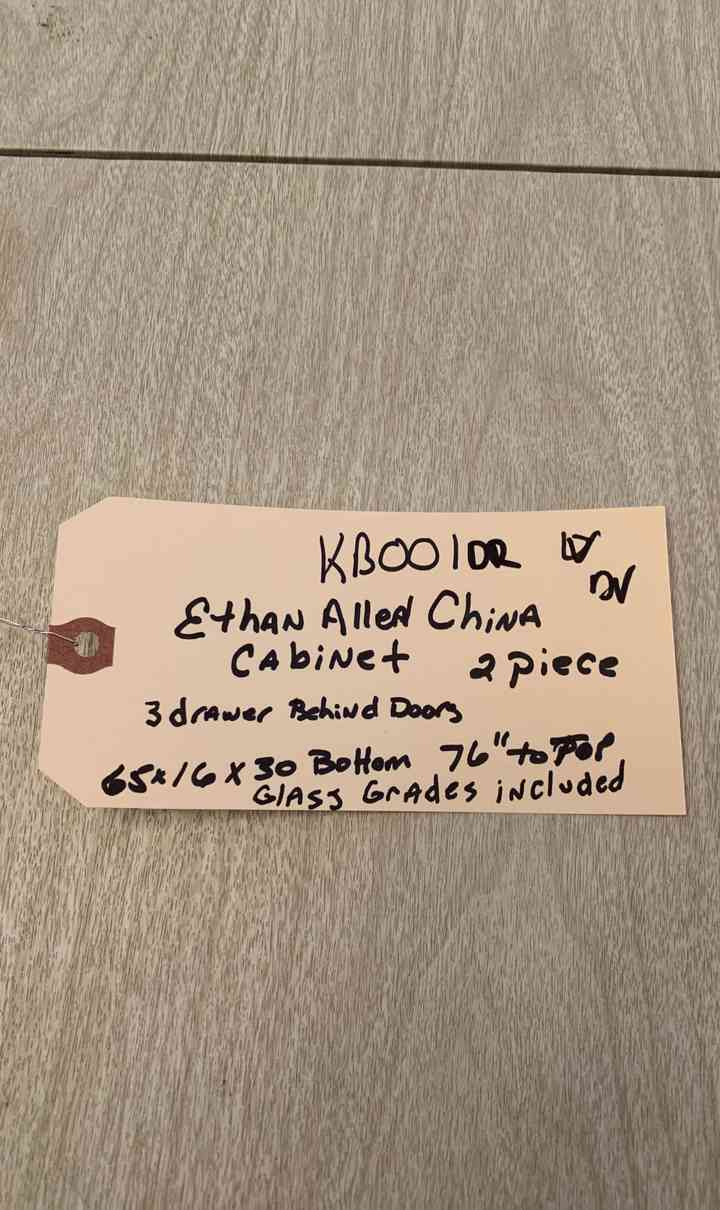 KB001DR
DV
Ethan Allen China
Cabinet 2 piece
3 drawer Behind Doors
65x16x30 Bottom 76" to TOP
Glass Grades included